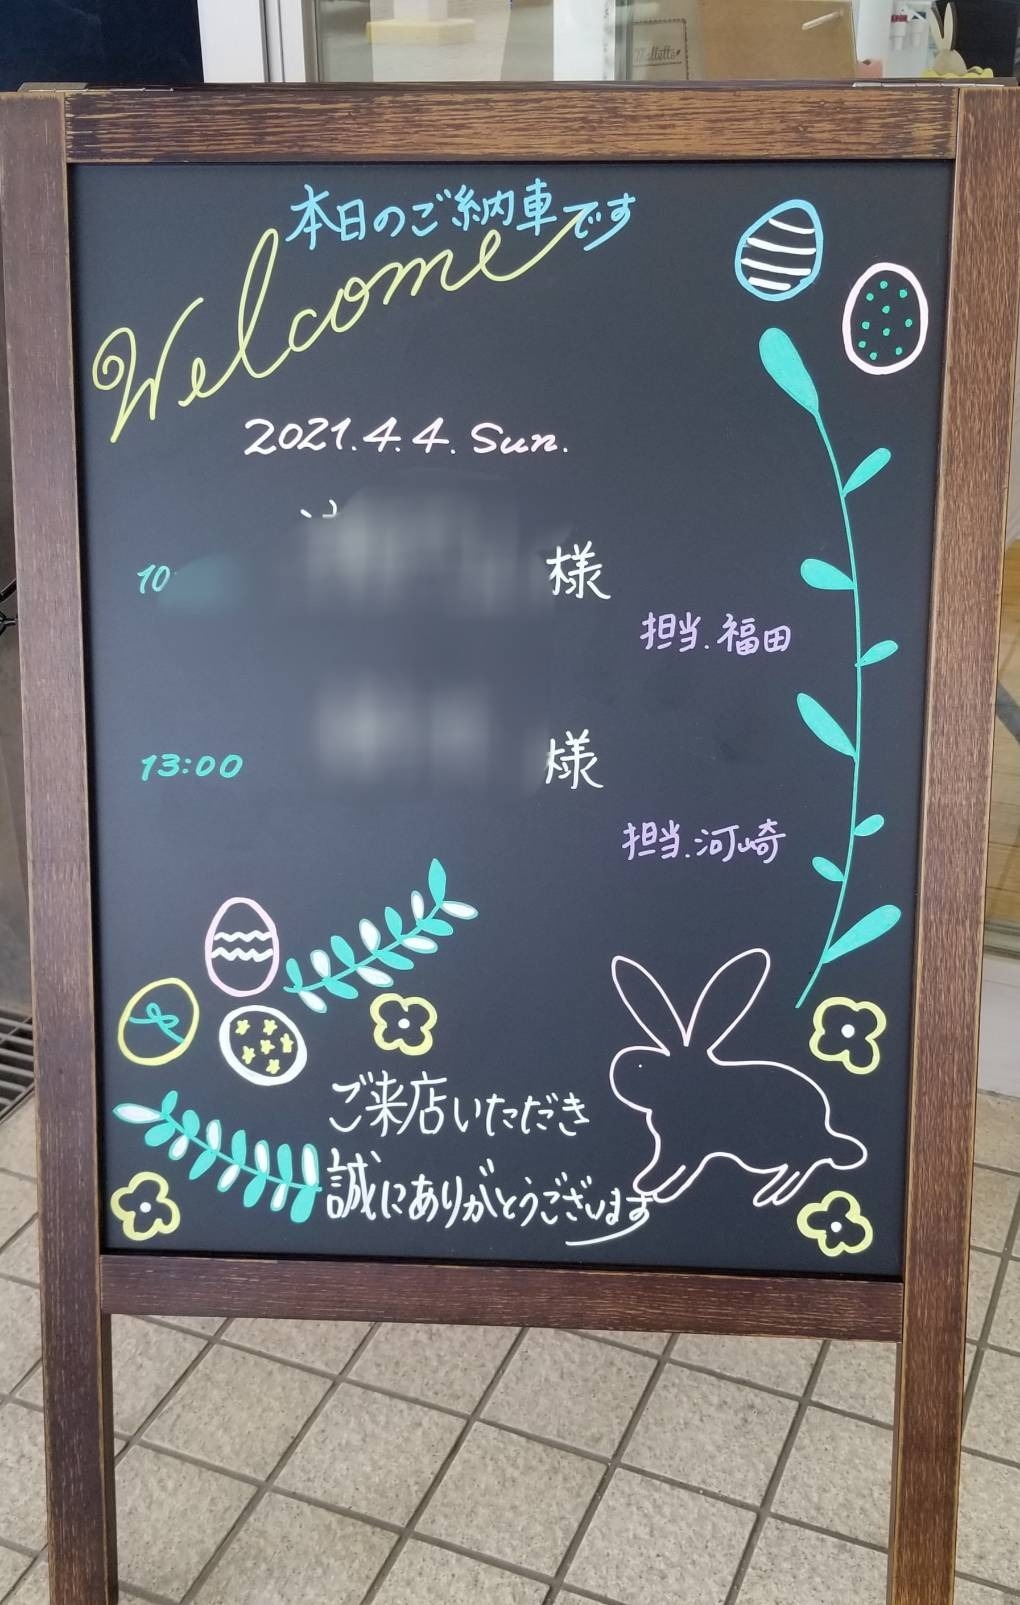 本日のご納車です
Welcome
2021.4.4. Sun.
10
様
担当.福田
13:00
様
担当.河崎
ご来店いただき
誠にありがとうございます